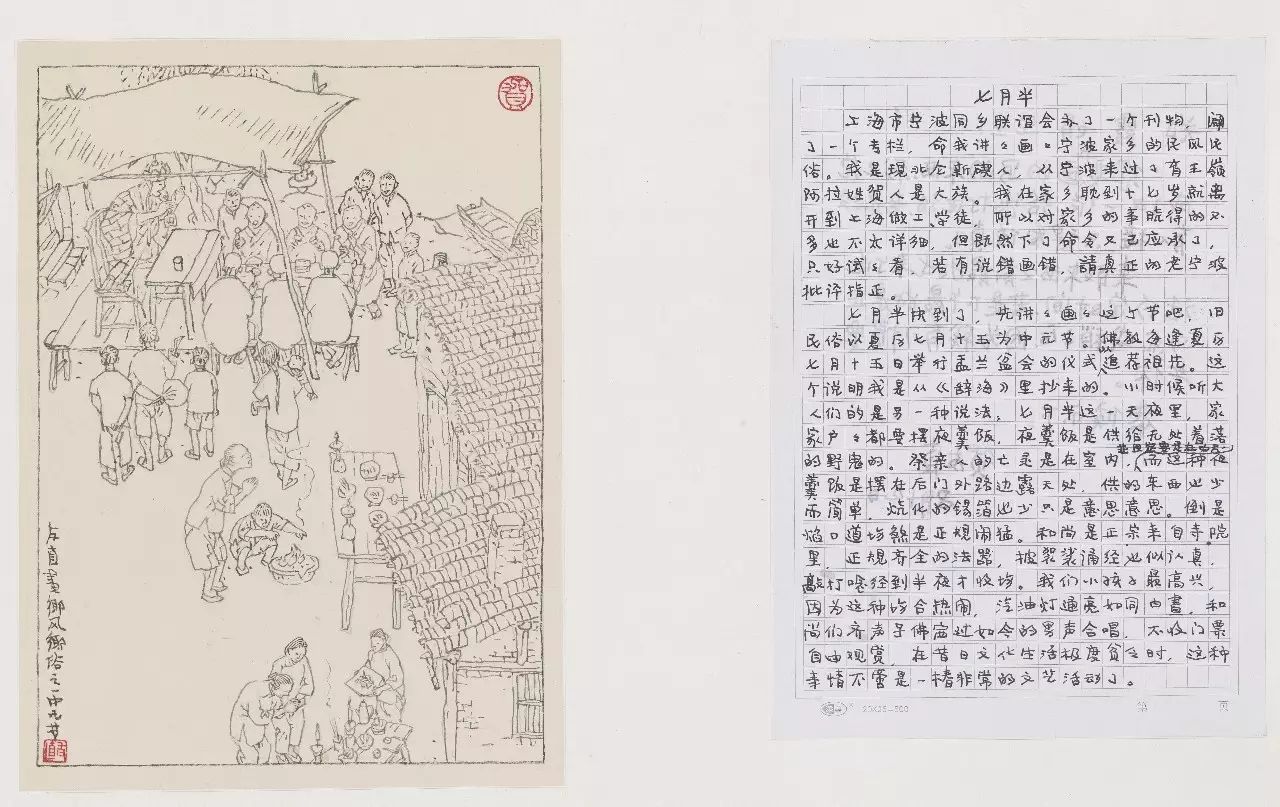 友直畫鄉风鄉俗之一中元节
七月半
上海市宁波同乡联谊会办了一个刊物，闢
了一个专栏，命我讲讲画画宁波家乡的民风民
俗。我是现北仑新碶人，从宁波来过了育王嶺
阿拉姓贺人是大族。我在家乡耽到十七岁就离
开到上海做工学徒，所以对家乡的事晓得的不
多也不太详细，但既然下了命令又已应承了，
只好试试看，若有说错画错，請真正的老宁波
批评指正。
七月半快到了，先讲讲画画这个节吧，旧
民俗以夏历七月十五为中元节。佛教每逢夏历
七月十五日举行盂兰盆会的仪式以追荐祖先。这
个说明我是从《辞海》里抄来的。小时候听大
人们的是另一种说法，七月半这一天夜里，家
家户户都要摆夜羹饭，夜羹饭是供给无处着落
的野鬼的。祭亲人的亡灵是在室内，而这种夜
羹饭是摆在后门外路边露天处，供的东西也少
而简单，烧化的锡箔也少只是意思意思。倒是
焰口道场煞是正规闹猛。和尚是正宗来自寺院
里，正规齐全的法器，披袈裟诵经也似认真，
敲打唸经到半夜才收场。我们小孩子最高兴，
因为这种场合热闹，汽油灯通亮如同白晝，和
尚们齐声子佛宙过如今的男声合唱，不收门票
自由观赏，在昔日文化生活极度贫乏时，这种
事情不啻是一椿非常的文艺活动了。
20X25=500
第 页